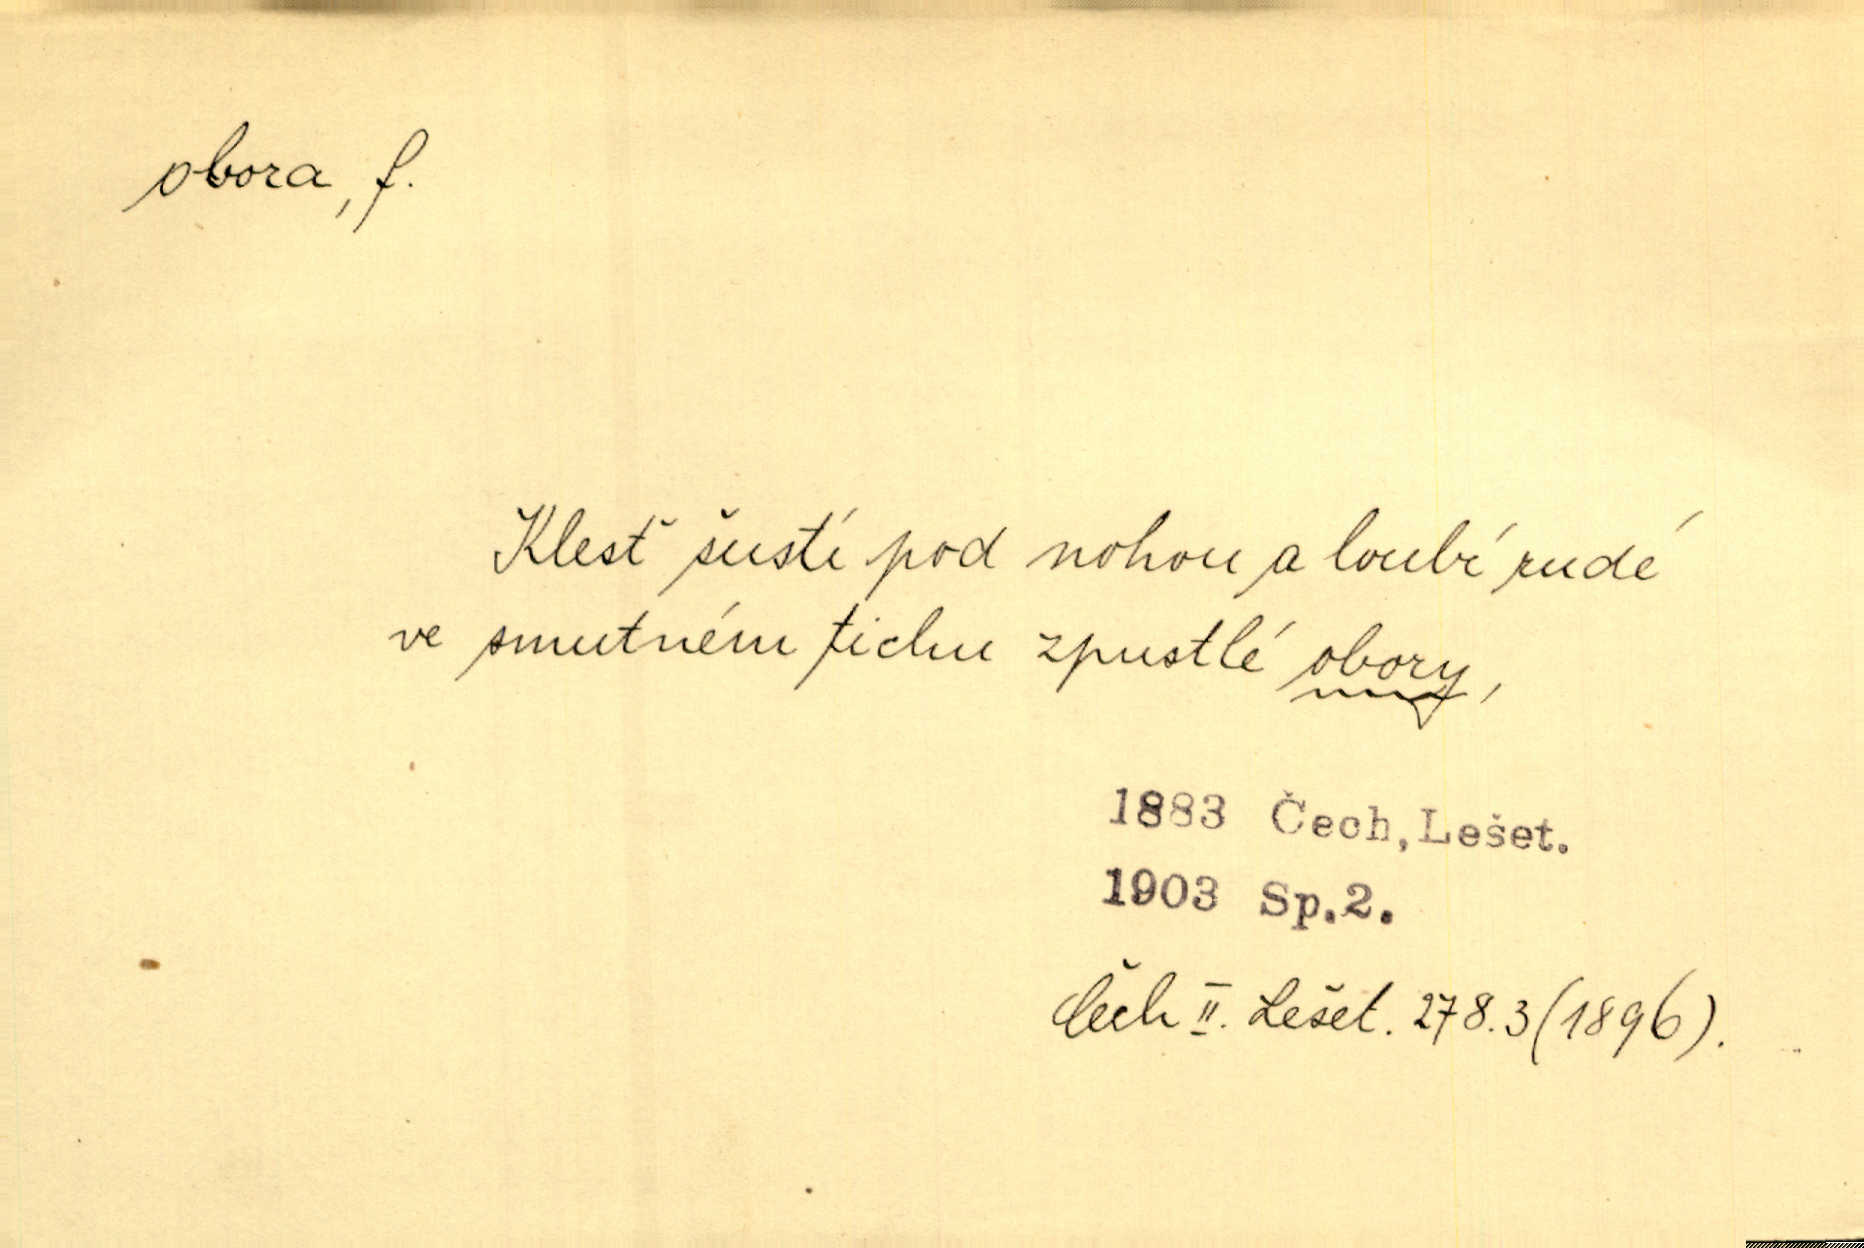 obora, f.
Klesť šustí pod nohou a loubí rudé
ve smutném tichu zpustlé obory,
1883 Čech, Lešet.
1903 Sp.2.
Čech II. Lešet. 278.3 (1896).